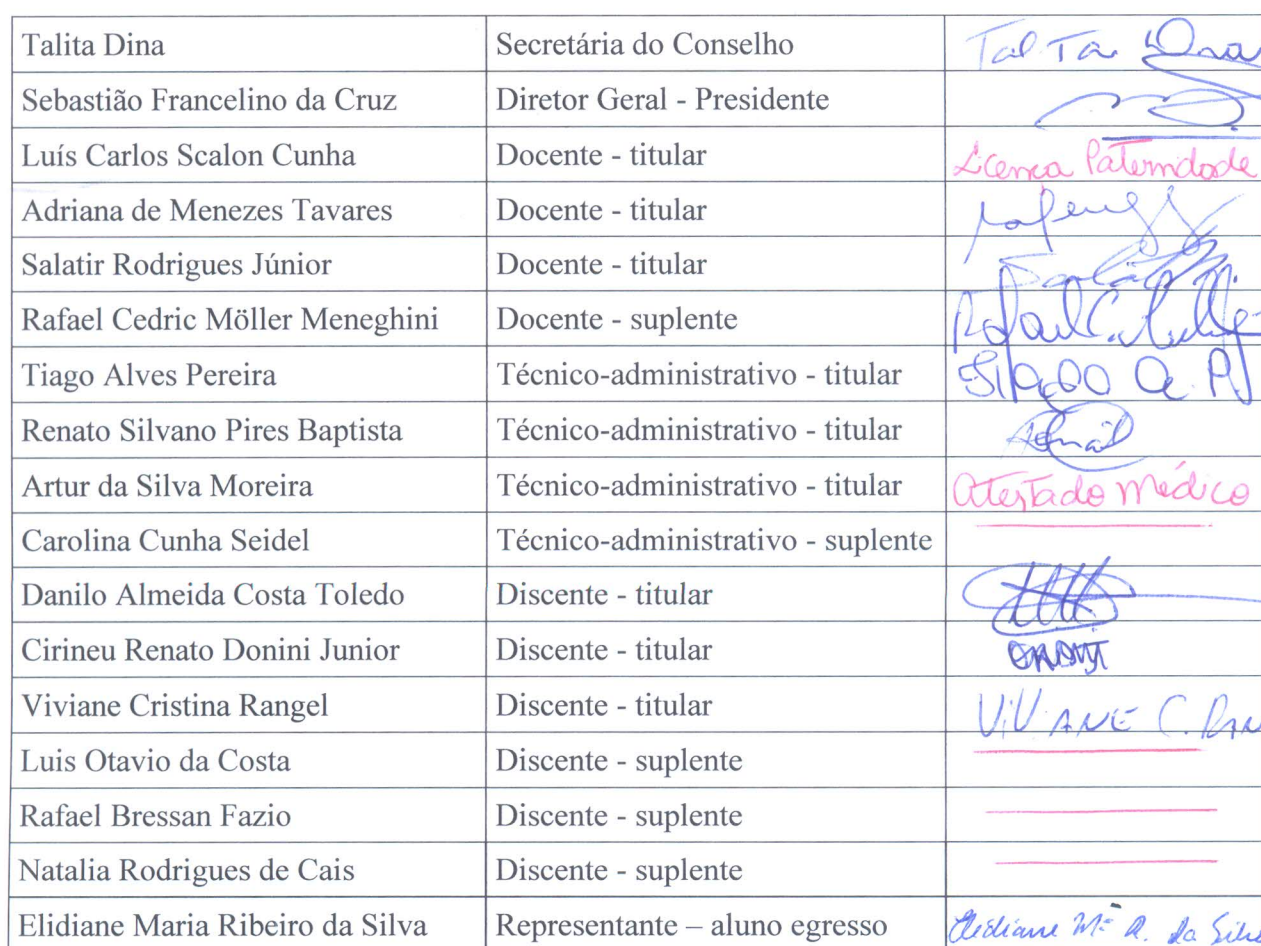 Talita Dina Secretária do Conselho Talita Dina
Sebastião Francelino da Cruz Diretor Geral - Presidente
Luís Carlos Scalon Cunha Docente - titular Licença Paternidade
Adriana de Menezes Tavares Docente - titular
Salatir Rodrigues Júnior Docente - titular
Rafael Cedric Möller Meneghini Docente - suplente Rafael C.
Tiago Alves Pereira Técnico-administrativo - titular
Renato Silvano Pires Baptista Técnico-administrativo - titular
Artur da Silva Moreira Técnico-administrativo - titular Atestado Médico
Carolina Cunha Seidel Técnico-administrativo - suplente
Danilo Almeida Costa Toledo Discente - titular
Cirineu Renato Donini Junior Discente - titular
Viviane Cristina Rangel Discente - titular ViViANE C. RAN
Luis Otavio da Costa Discente - suplente
Rafael Bressan Fazio Discente - suplente
Natalia Rodrigues de Cais Discente - suplente
Elidiane Maria Ribeiro da Silva Representante – aluno egresso Elidiane Mª R. da Silv